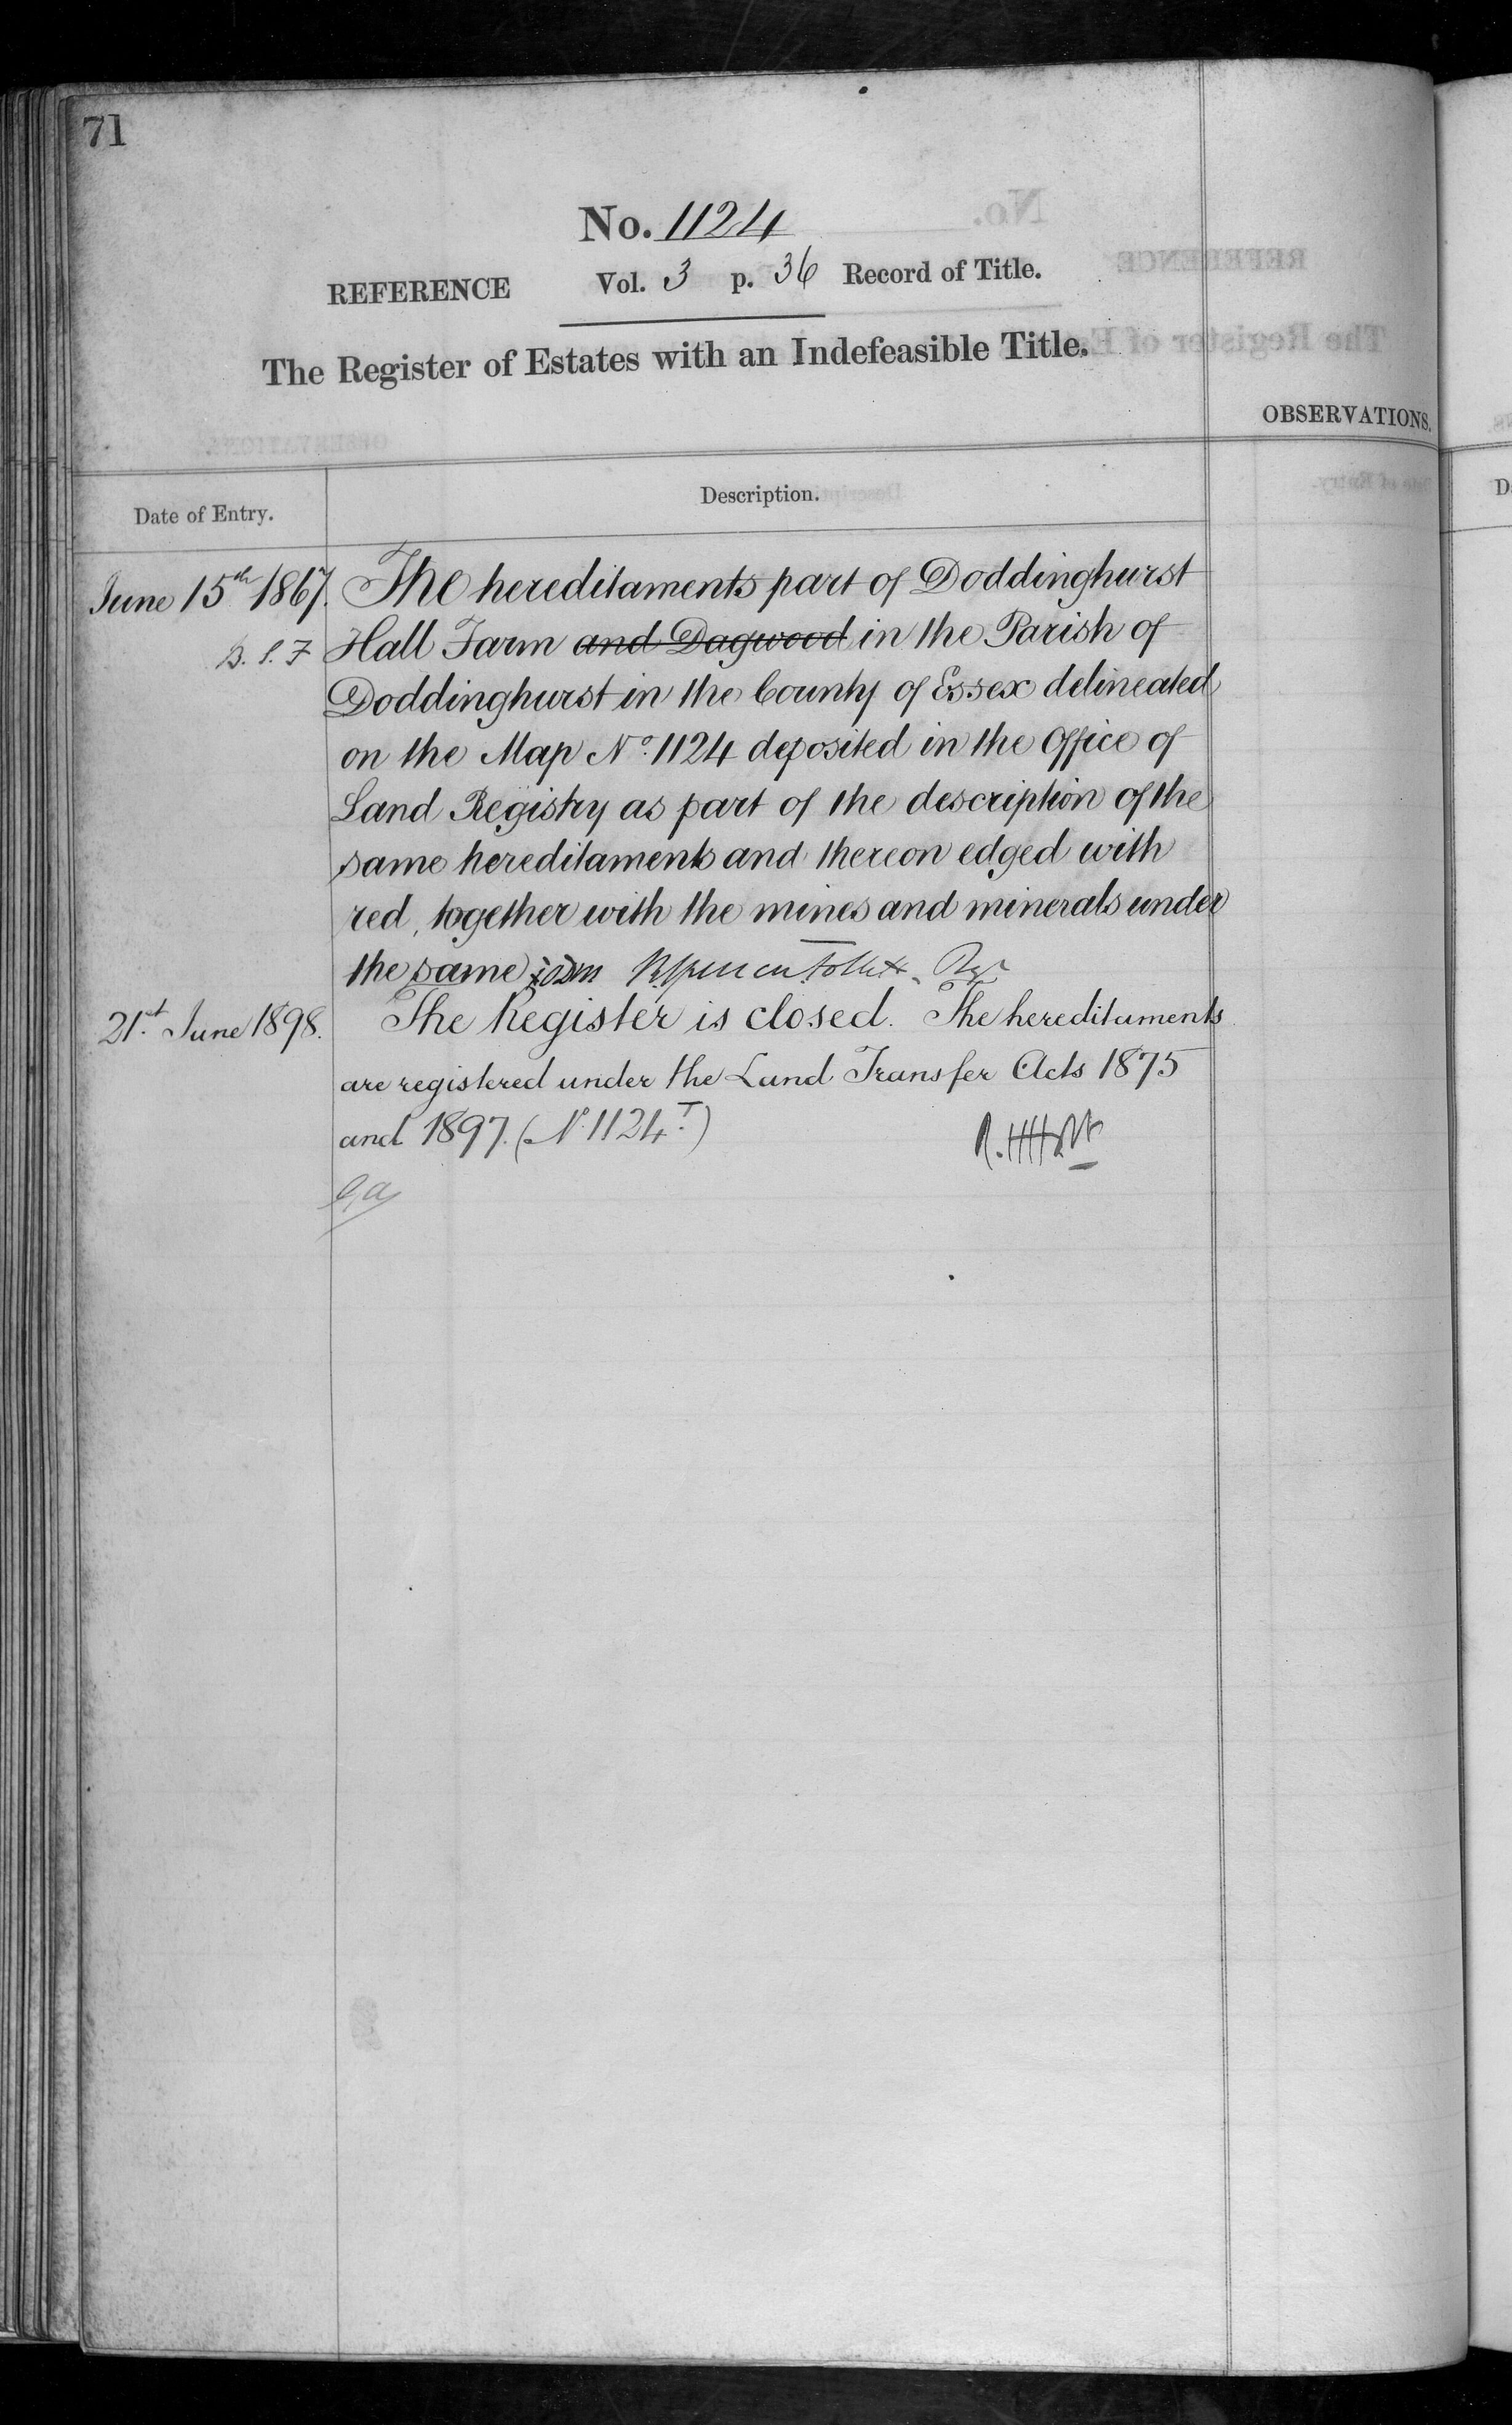 71
No. 1124
REFERENCE Vol. 3 p. 36 Record of Title.
The Register of Estates with an Indefeasible Title.
OBSERVATIONS.
Date of Entry. Description.
June 15th 1867. The hereditaments part of Doddinghurst
B. S. F Hall Farm and Dagwood in the Parish of
Doddinghurst in the County of Essex delineated
on the Map No. 1124 deposited in the Office of
Land Registry as part of the description of the
same hereditaments and thereon edged with
red, together with the mines and minerals under
the same Brent Spencer Follett Regr
21st June 1898. The Register is closed. The hereditaments
are registered under the Land Transfer Acts 1875
and 1897. (No. 1124 T)